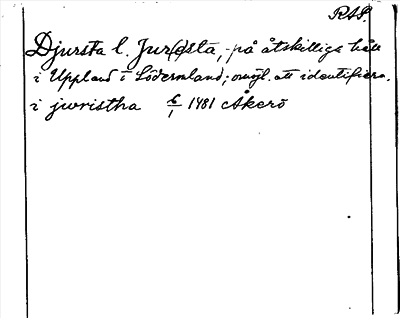 RAP.
Djursta l. Jur(e)sta, på åtskilliga håll
i Uppland i Södermland; omöjl. att identifiera.
i jwristha 6/1 1481 Åkerö